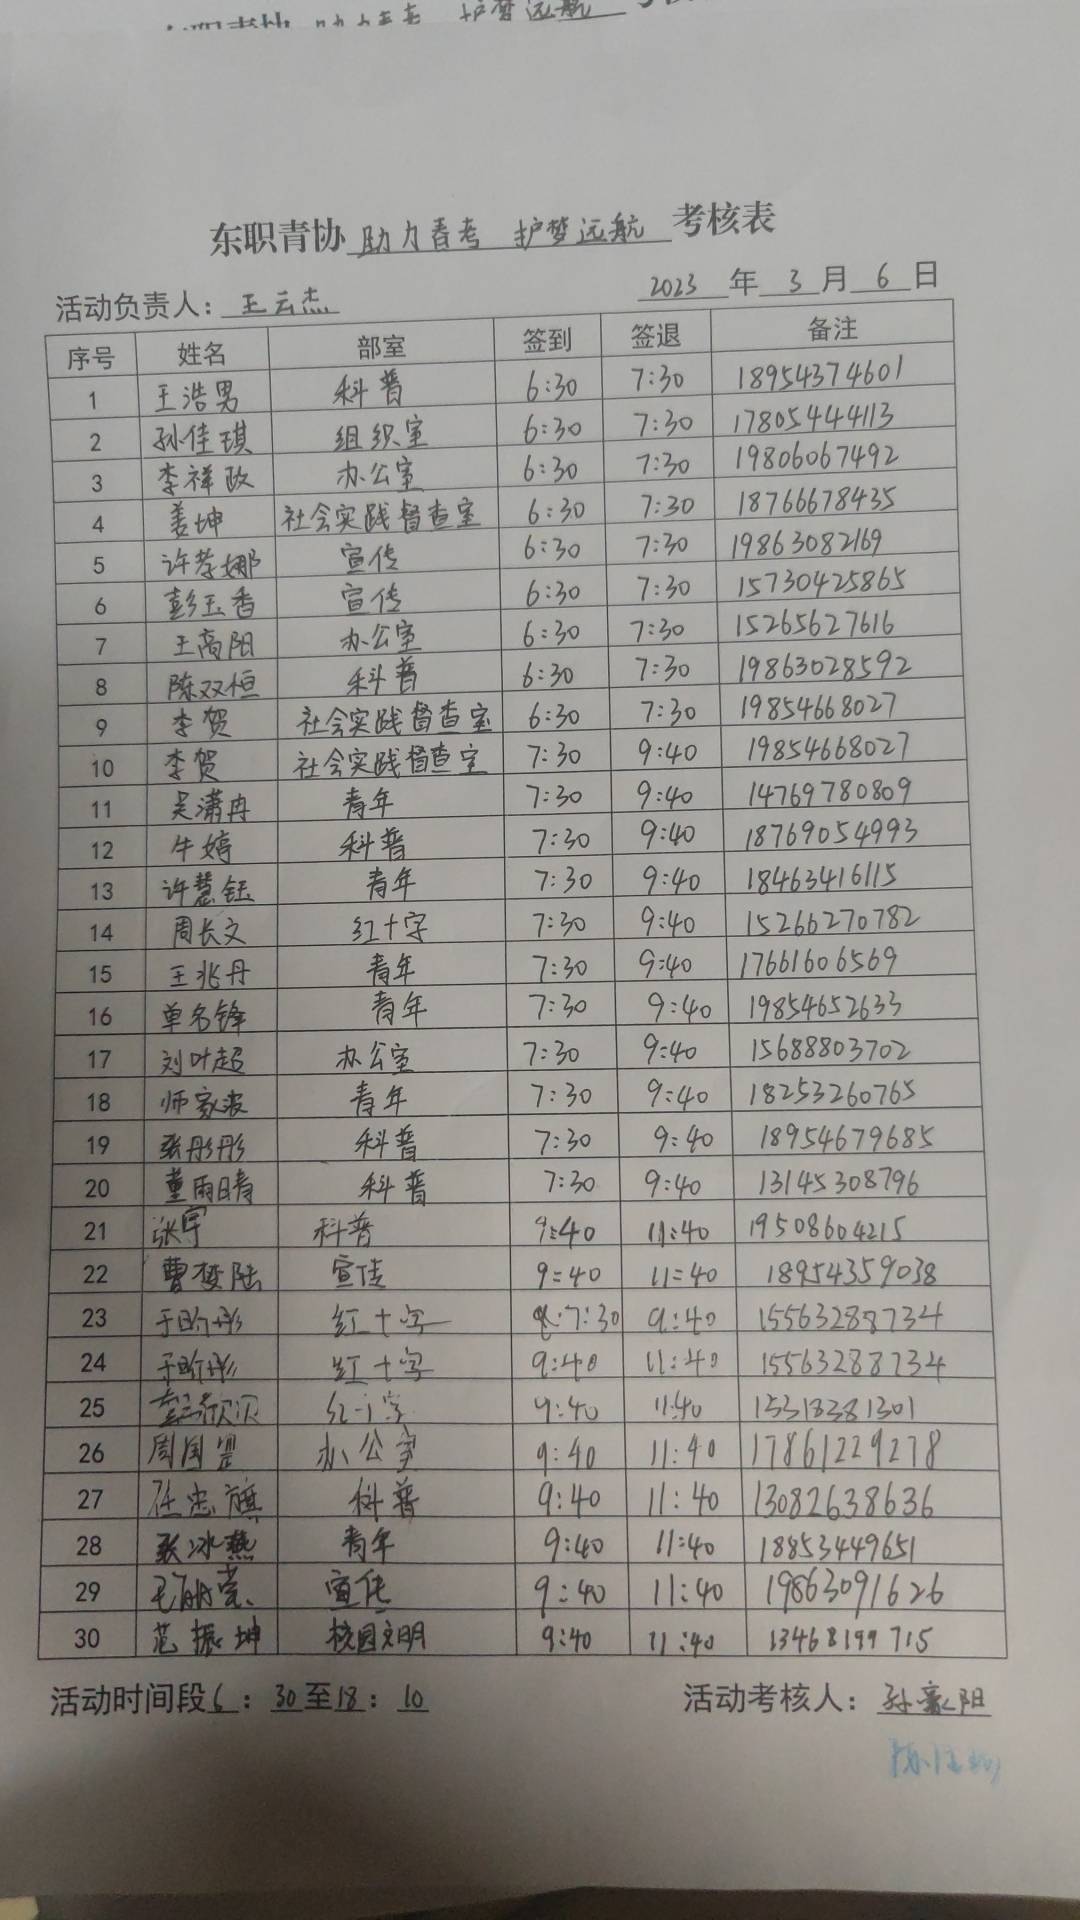 护梦远航
东职青协 助力春考 护梦远航 考核表
活动负责人：王云杰 2023 年 3 月 6 日
序号 姓名 部室 签到 签退 备注
1 王浩男 科普 6:30 7:30 18954374601
2 孙佳琪 组织室 6:30 7:30 17805444113
3 李祥政 办公室 6:30 7:30 19806067492
4 姜坤 社会实践督查室 6:30 7:30 18766678435
5 许孝娜 宣传 6:30 7:30 19863082169
6 彭玉香 宣传 6:30 7:30 15730425865
7 王高阳 办公室 6:30 7:30 15265627616
8 陈双恒 科普 6:30 7:30 19863028592
9 李贺 社会实践督查室 6:30 7:30 19854668027
10 李贺 社会实践督查室 7:30 9:40 19854668027
11 吴潇冉 青年 7:30 9:40 14769780809
12 牛婷 科普 7:30 9:40 18769054993
13 许慧钰 青年 7:30 9:40 18463416115
14 周长文 红十字 7:30 9:40 15266270782
15 王兆丹 青年 7:30 9:40 17661606569
16 单名锋 青年 7:30 9:40 19854652633
17 刘叶超 办公室 7:30 9:40 15688803702
18 师家波 青年 7:30 9:40 18253260765
19 张彤彤 科普 7:30 9:40 18954679685
20 董雨晴 科普 7:30 9:40 13145308796
21 张宇 科普 9:40 11:40 19508604215
22 曹梦陆 宣传 9:40 11:40 18954359038
23 于昕彤 红十字 7:30 9:40 15563288734
24 于昕彤 红十字 9:40 11:40 15563288734
25 红十字 9:40 11:40 15318381301
26 周国 办公室 9:40 11:40 17861229278
27 任忠旗 科普 9:40 11:40 13082638636
28 张冰燕 青年 9:40 11:40 18853449651
29 宣传 9:40 11:40 19863091626
30 范振坤 校园文明 9:40 11:40 13468199715
活动时间段 6：30至18：10 活动考核人：孙豪阳